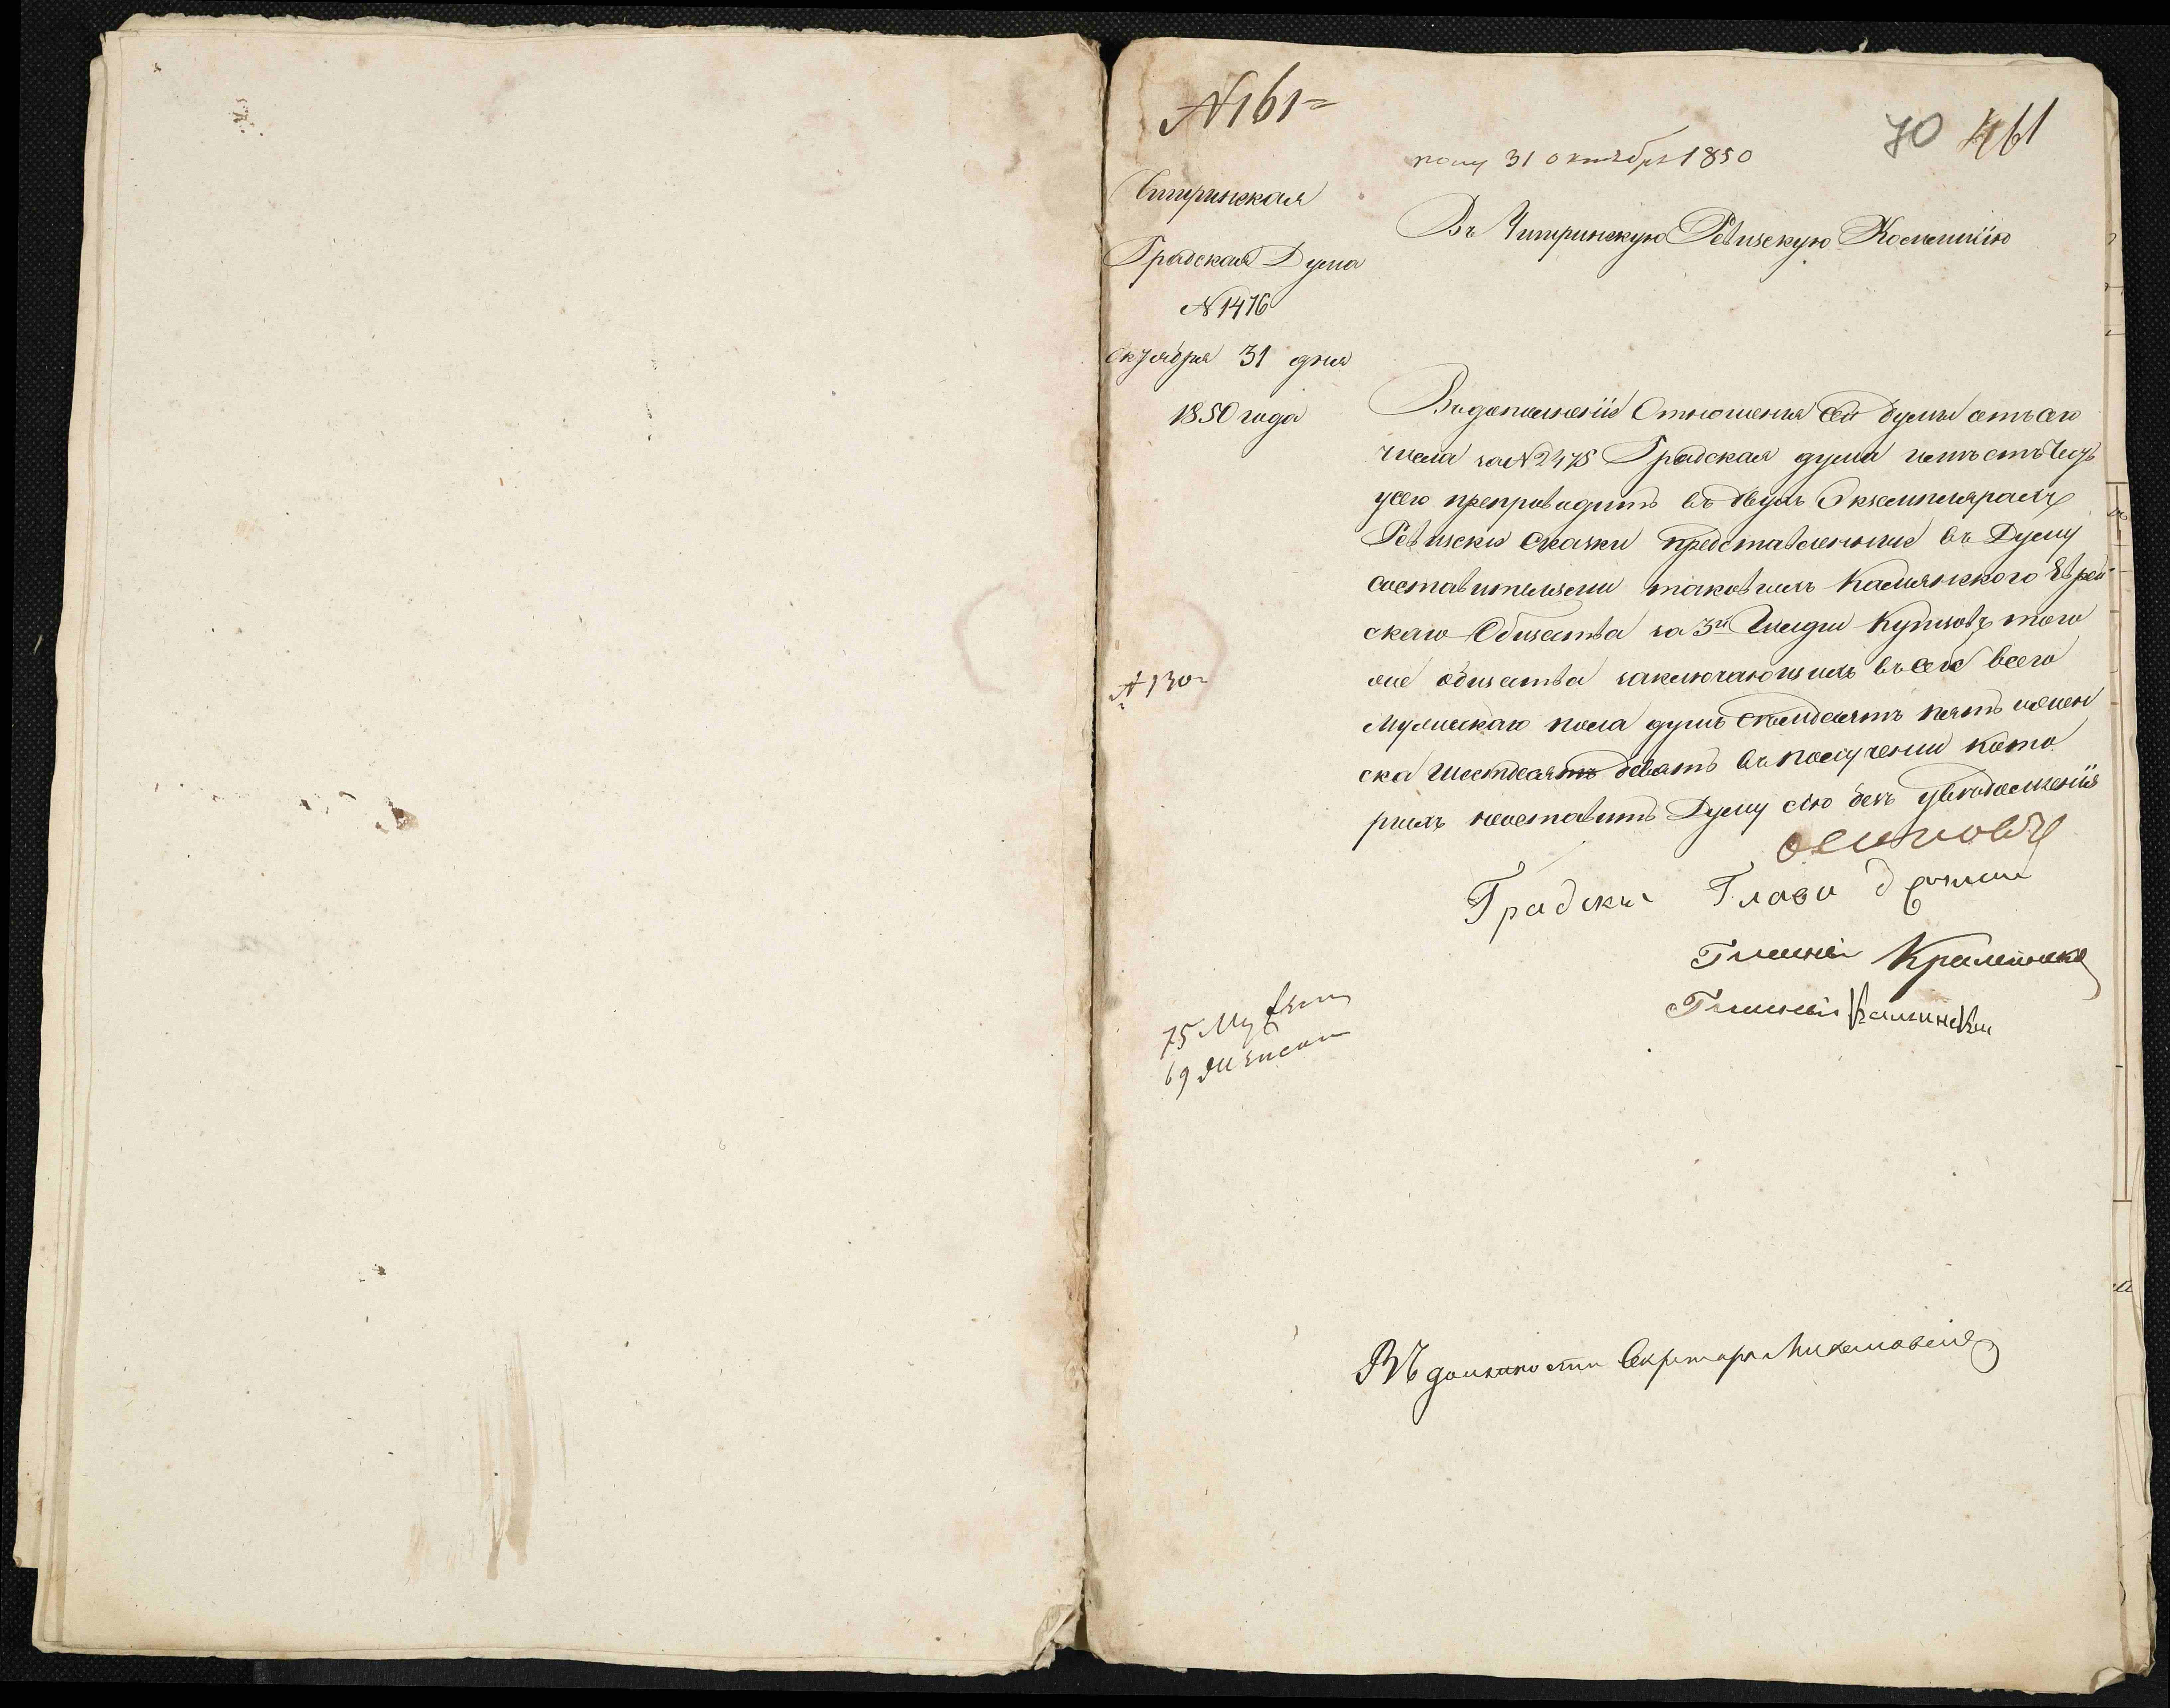 № 161=
70 461
полу 31 октября 1850
Чигринская
Градская Дума
№ 1476
октября 31 дня
1850 года
Въ Чигринскую Ревизскую Коммиссію
Въ дополненіе Отношенія сей думы отъ сего
числа за № 2475 Градская дума имѣетъ честь
у сего препроводить въ двухъ Экземплярахъ
Ревизски Сказки представленные въ Думу
составителями таковыхъ Камянского Еврей
скаго Общества за 3й Гильдіи Купцовъ того
же общества заключающихъ въ себѣ всего
Мужескаго пола душъ семдесятъ пять женен
ска шестдесятъ девять въ полученіи кото
рыхъ неоставить Думу сію безъ увѣдомленія
№ 130
Градскій Глава
Гласный
Гласный
75 Муж
69 Женск
Въ должности Секретаря